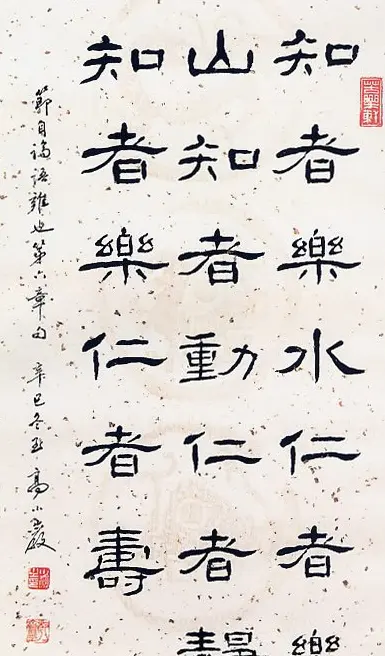 知者樂水仁者樂
山知者動仁者靜
知者樂仁者壽
節自論語雍也第六章句 辛巳冬至 高小巖